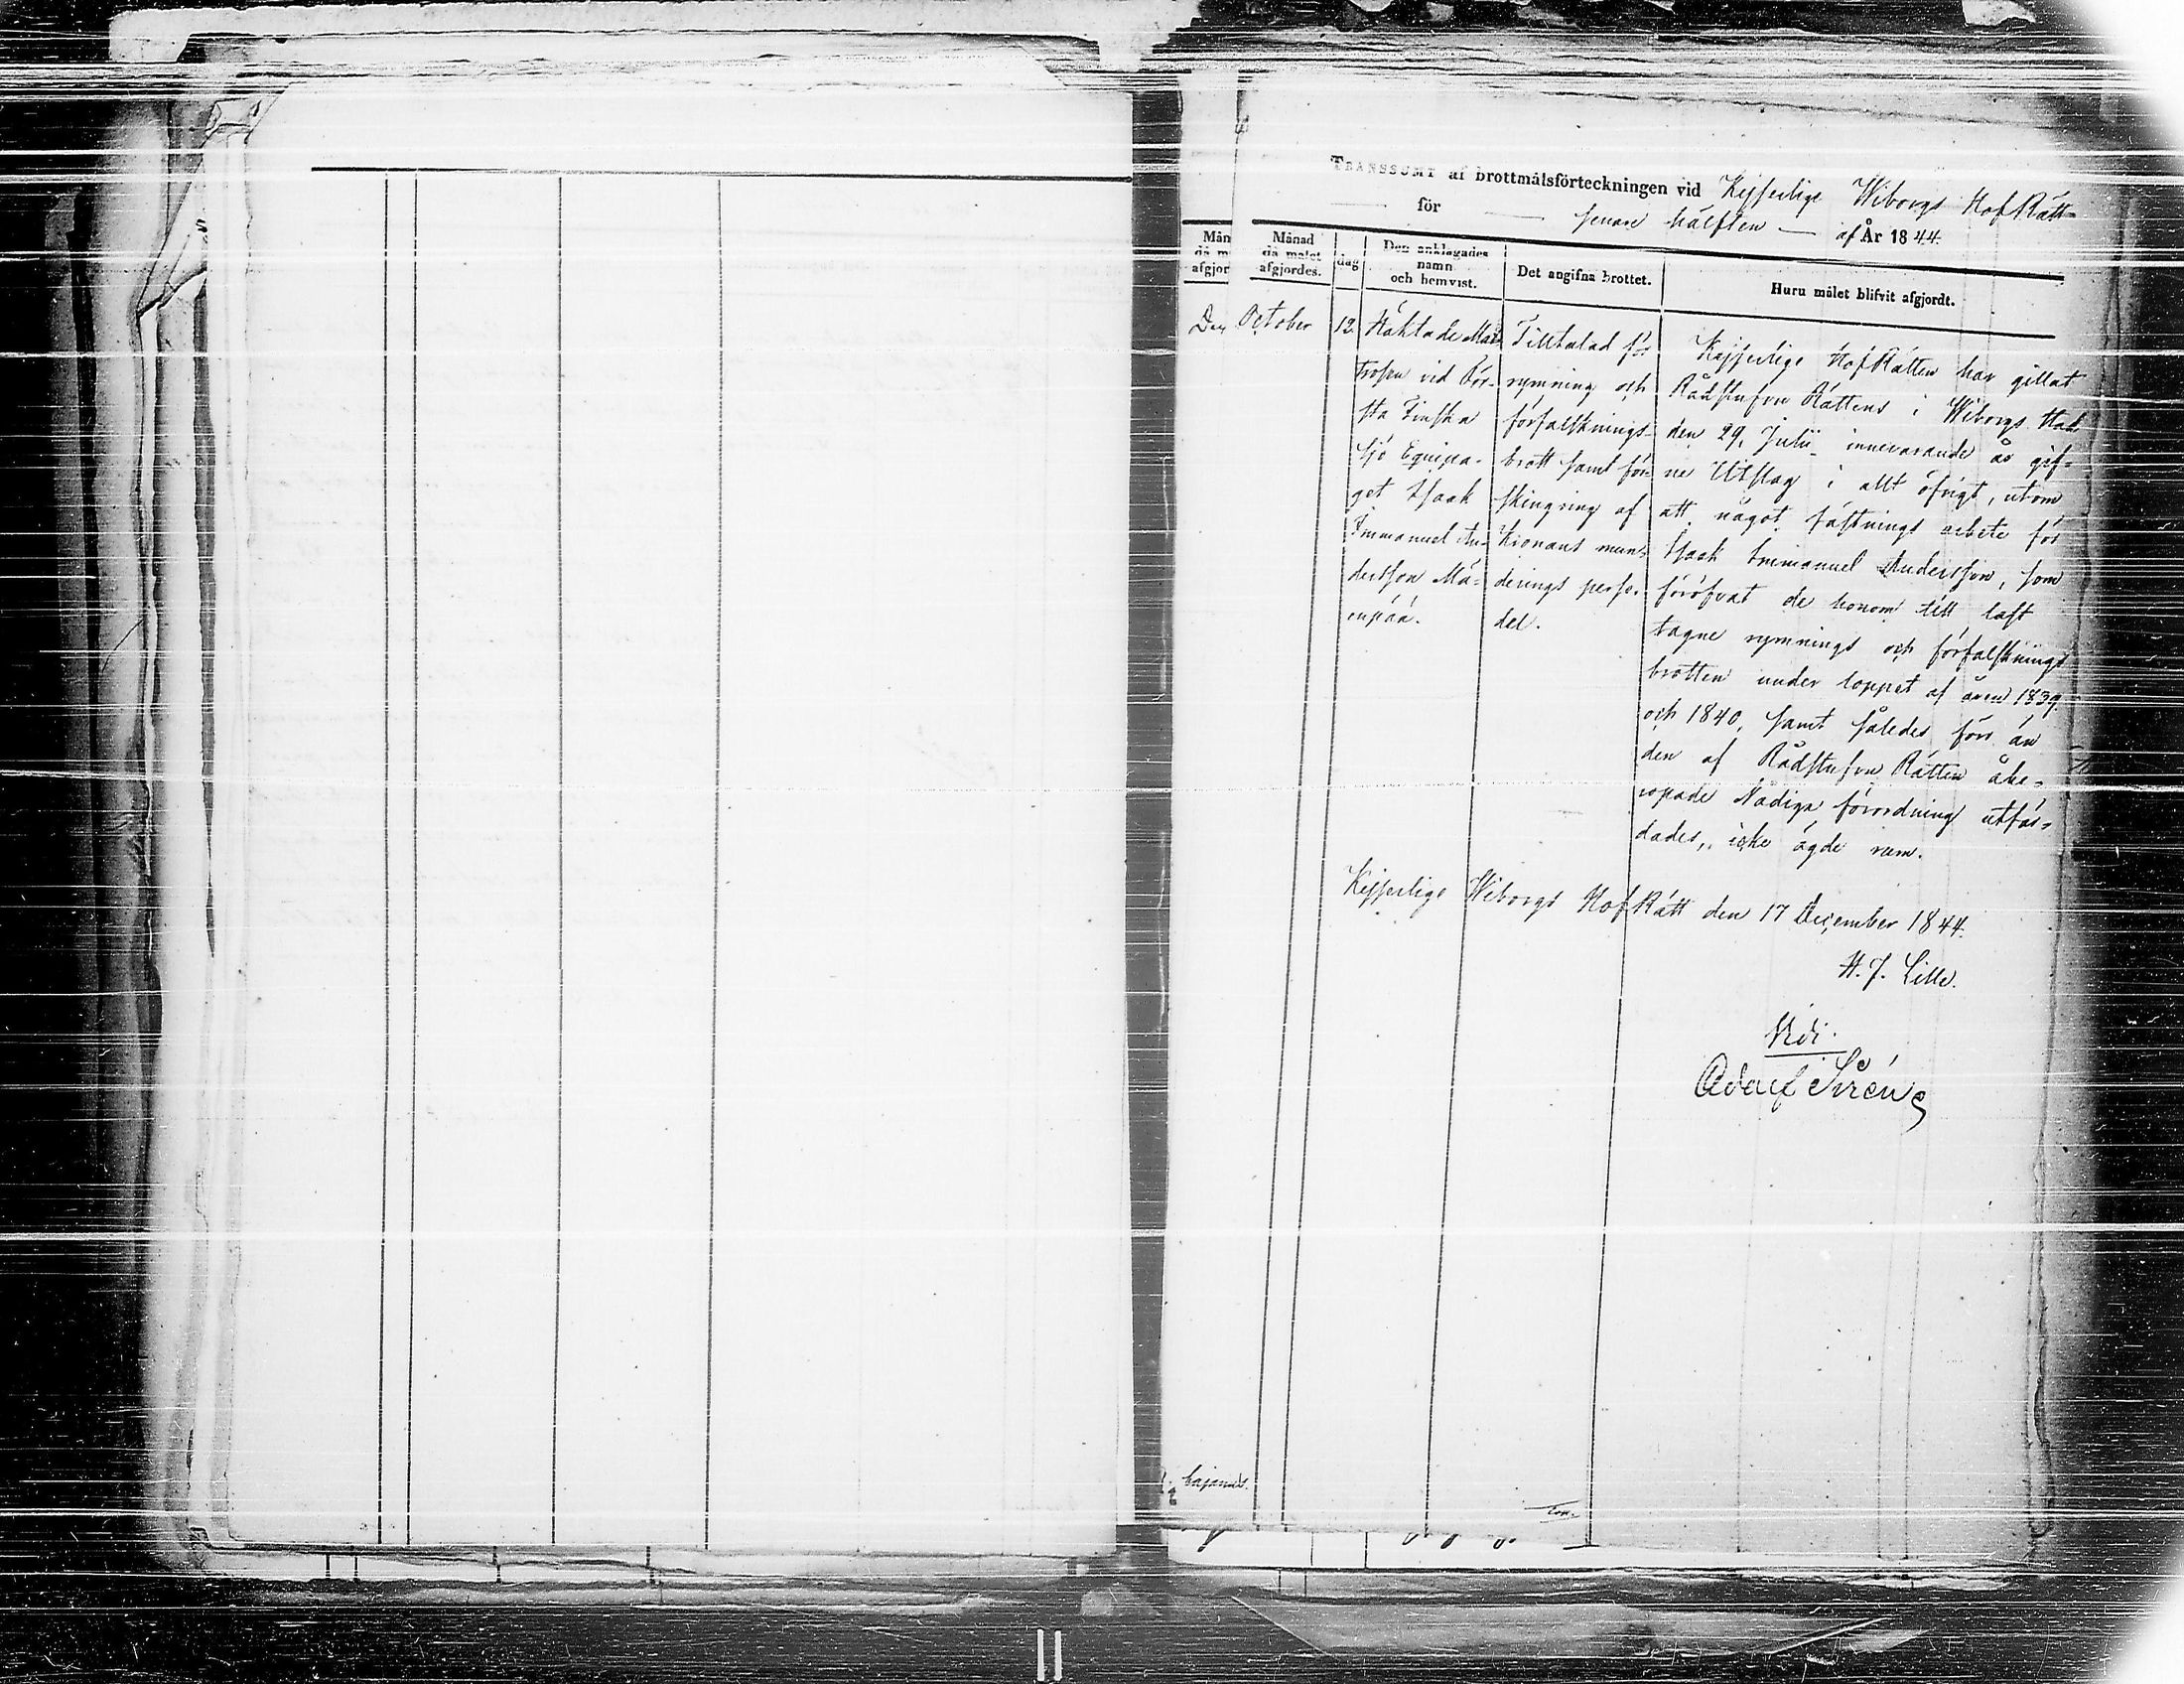 TRANSSUMT af brottmålsförteckningen vid Kejserlige Wiborgs HofRätt
för senare hälften af År 1844.
Mån
då m
afgjor
Månad
då målet
afgjordes.
dag
Den anklagades
namn
och hemvist.
Det angifna brottet.
Huru målet blifvit afgjordt.
October
12.
Häktade Mat-
rosen vid För-
sta Finska
Sjö Equipa-
get Isaak
Immanuel An-
dersson Mä-
enpää.
Tilltalad för
rymning och
förfalsknings-
brott samt för-
skingring af
Kronans mun-
derings perse-
del.
Kejserlige HofRätten har gillat
Rådstufvu Rättens i Wiborgs Stad
den 29. Julii innevarande år gif-
ne Utslag i allt öfrigt, utom
att något fästnings arbete för
Isaak Immanuel Andersson, som
föröfvat de honom till last
tagne rymnings och förfalsknings
brotten under loppet af åren 1839.
och 1840, samt således förr än
den af Rådstufvu Rätten åbe-
ropade Nådiga förordning utfär-
dades, icke ägde rum.
Kejserlige Wiborgs HofRätt den 17 December 1844.
H. J. Lille.
Vidi.
Adolf Sirén
Cajanus.